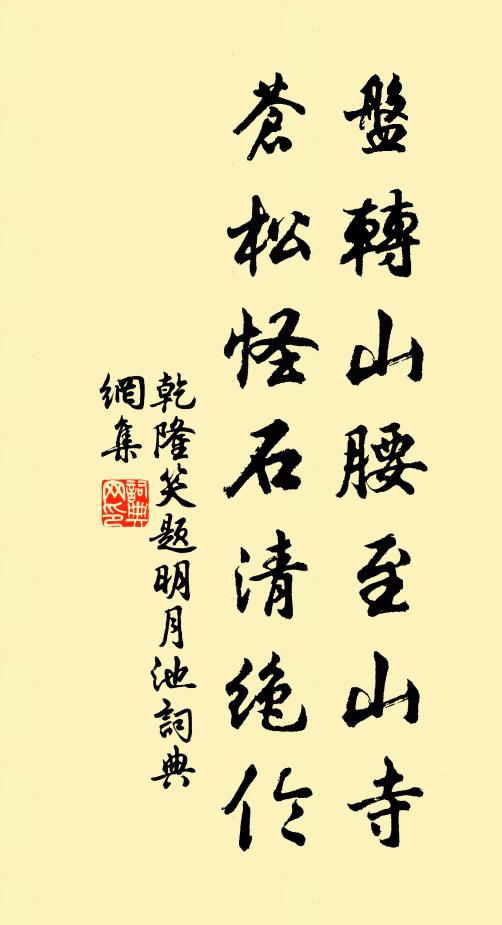 盤轉山腰至山寺
蒼松怪石清絶伶
乾隆笑題明月池詞典
網集
詞典
网印